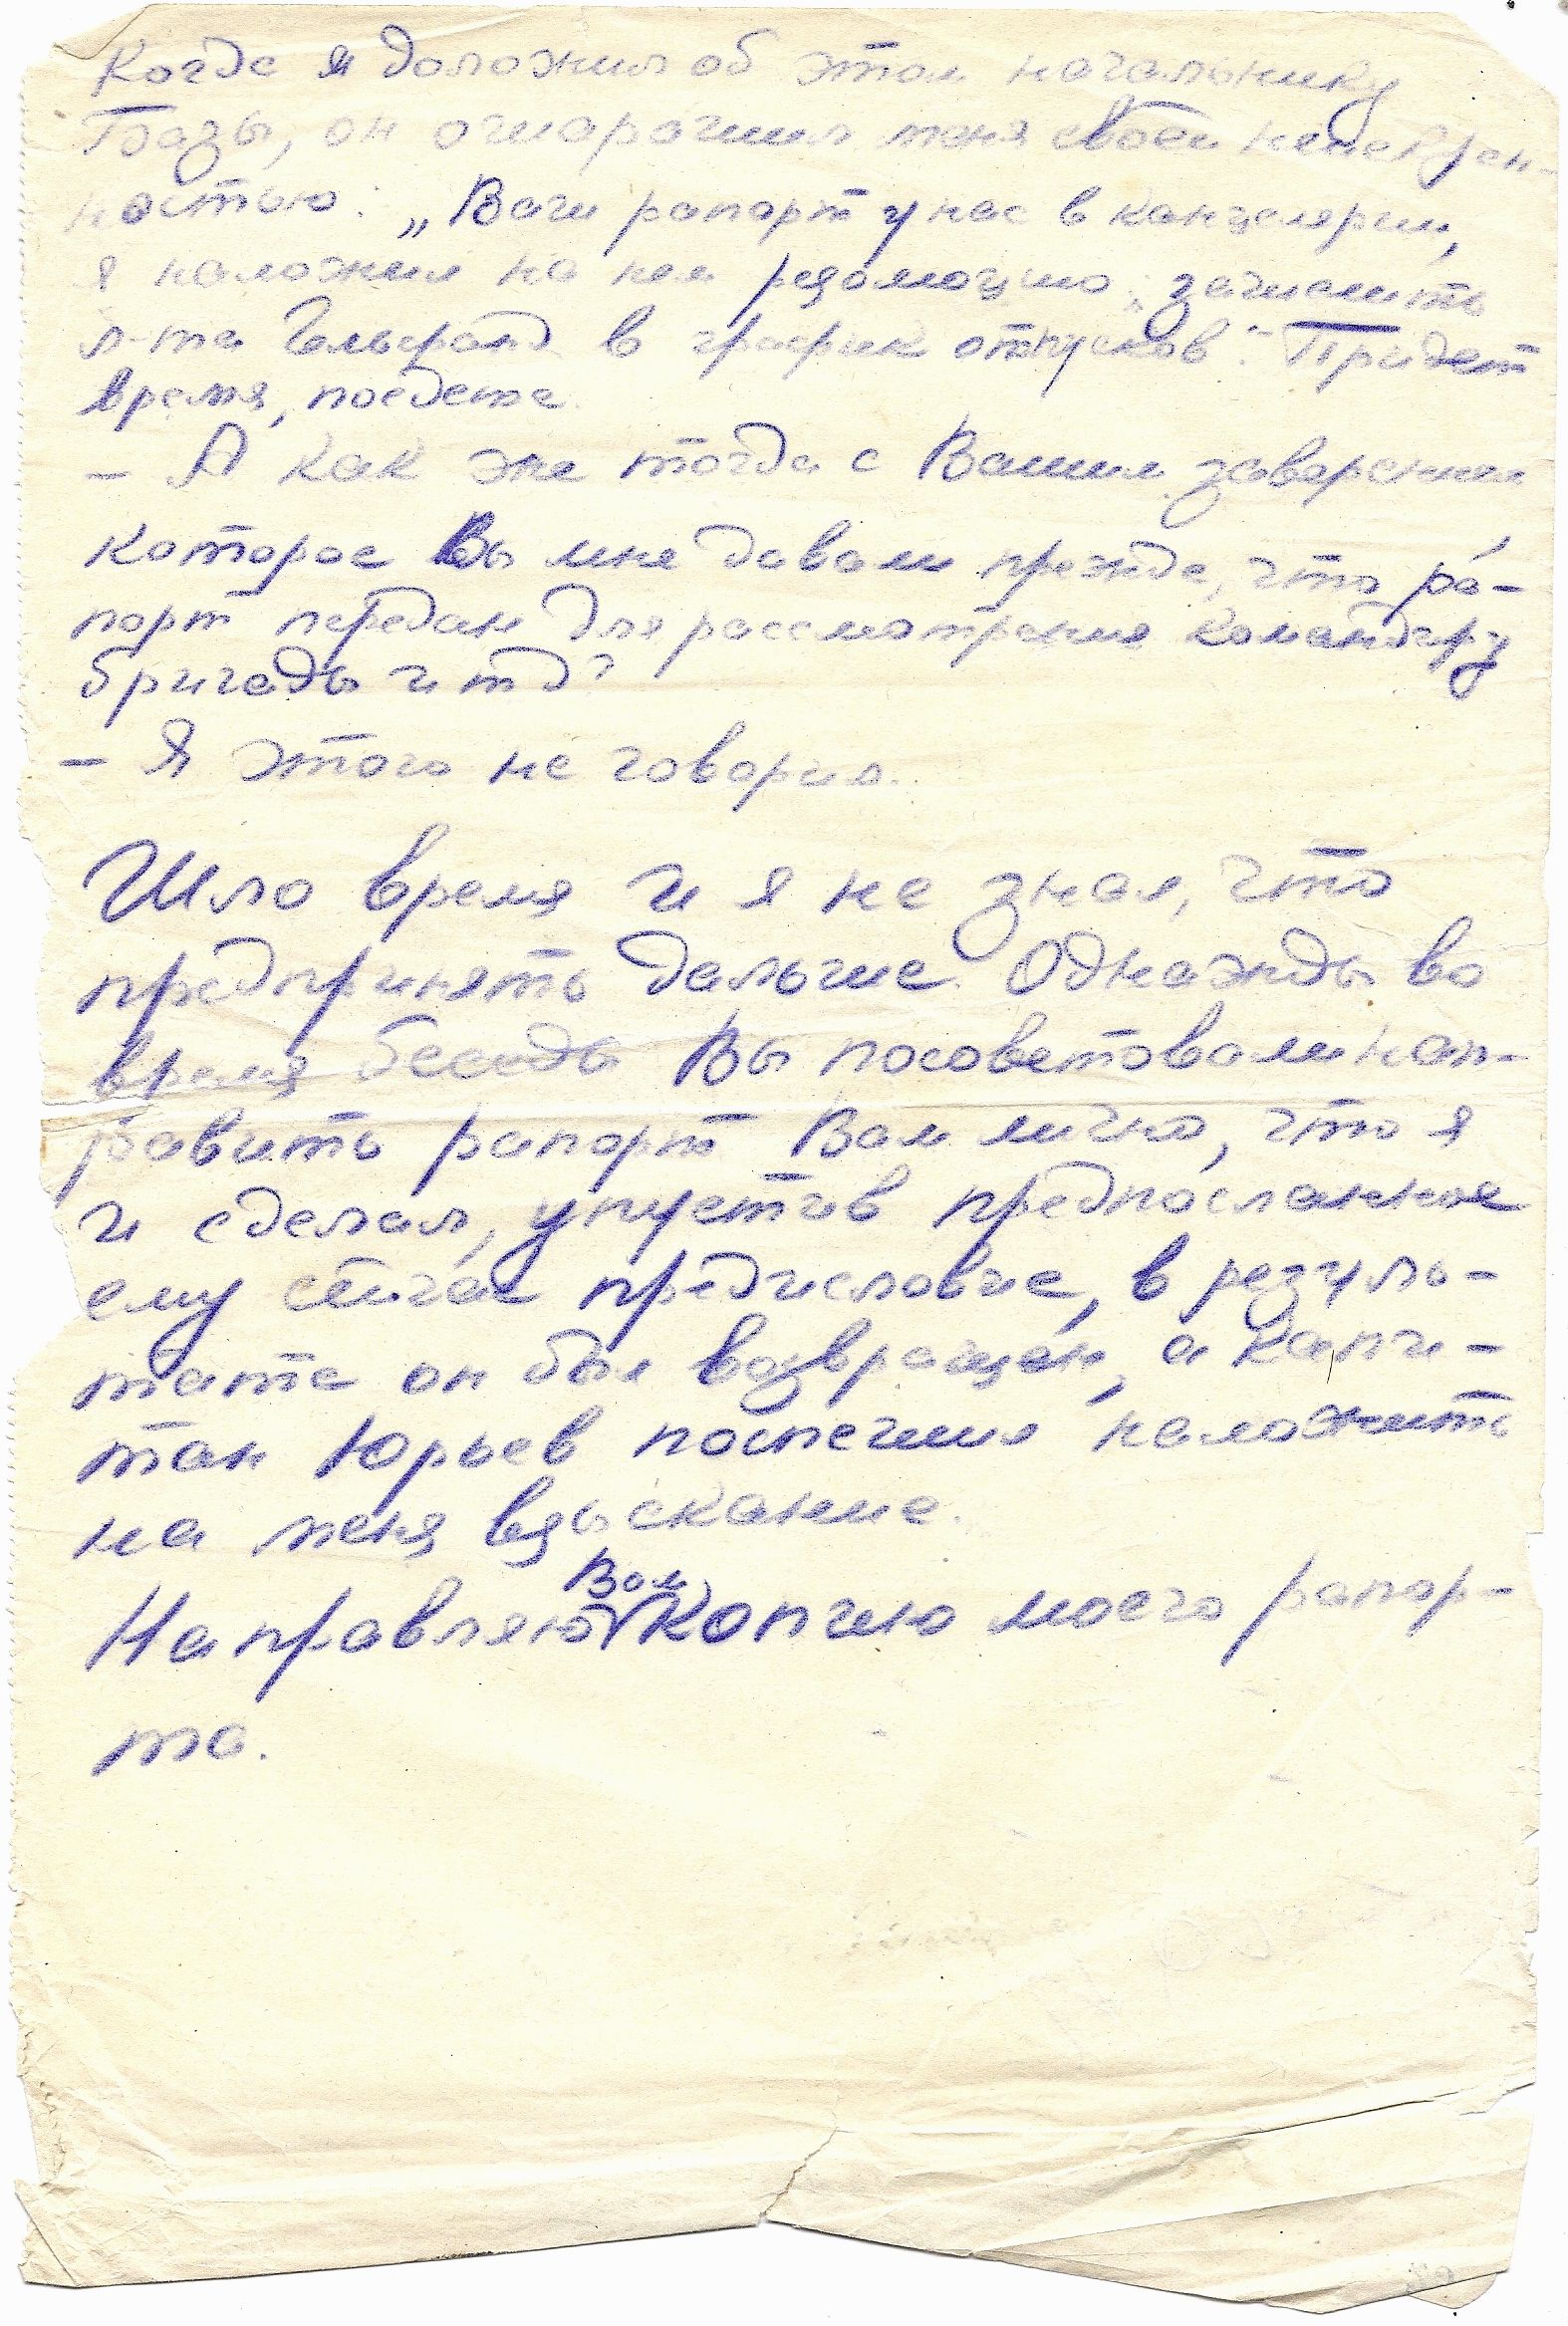 Когда я доложил об этом начальнику
Базы, он ошарашил меня своей
ностью: „Ваш рапорт у нас в канцелярии,
я наложил на нем резолюцию „зачислить
л-та Гельфанд в график отпусков". Придет
время, поедете.
– А как же тогда с Вашим заверением
которое Вы мне давали прежде, что ра-
порт передан для рассмотрения командиру
бригады и тд?
– Я этого не говорил.
Шло время и я не знал, что
предпринять дальше. Однажды во
время беседы Вы посоветовали нап-
равить рапорт Вам лично, что я
и сделал, упустив предпосланное
ему сейчас предисловие, в резуль-
тате он был возвращен, а капи-
тан Юрьев поспешил наложить
на меня взыскание.
Направляю Вам копию моего рапор-
та.